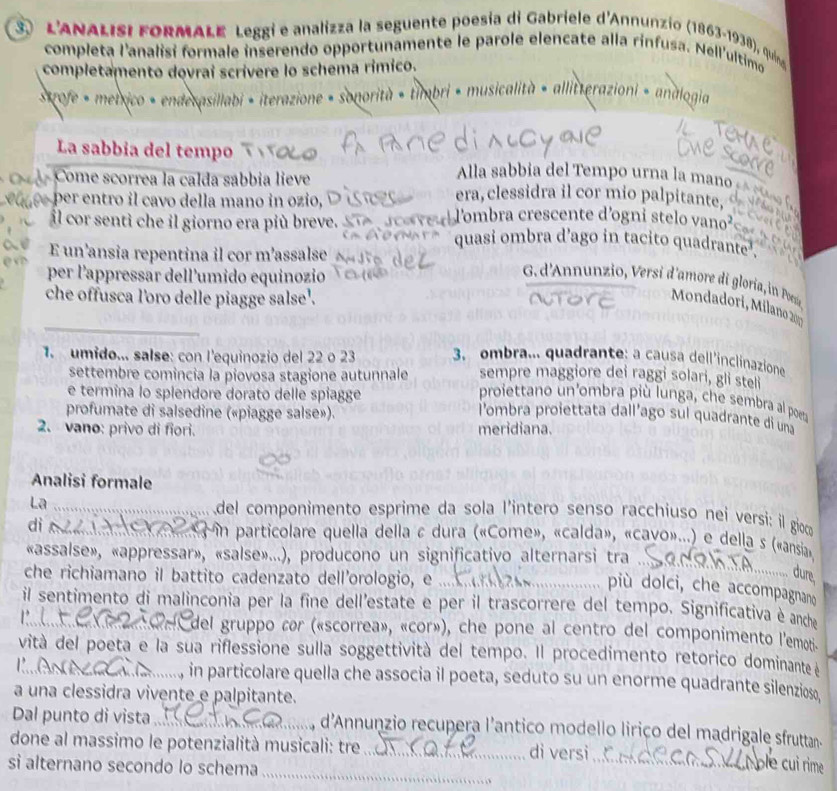 3. L'ANALISI FORMALE Leggi e analizza la seguente poesia di Gabriele d'Annunzio (1863-1938), quindi
completa l'analisi formale inserendo opportunamente le parole elencate alla rinfusa. Nell'ultimo
completamento dovrai scrivere lo schema rimico.
strofe • metrico • endecasillabi • iterazione • sonorità • timbri • musicalità • allitterazioni • analogia
La sabbia del tempo TITOLO
Come scorrea la calda sabbia lieve
per entro il cavo della mano in ozio,
il cor sentì che il giorno era più breve.
E un'ansia repentina il cor m'assalse
per l'appressar dell'umido equinozio
che offusca l'oro delle piagge salse¹.
Alla sabbia del Tempo urna la mano
era, clessidra il cor mio palpitante,
l'ombra crescente d'ogni stelo vano²
quasi ombra d'ago in tacito quadrante³.
G. d'Annunzio, Versi d'amore di gloria, in Poesie,
Mondadori, Milano
AUTORE
1. umido... salse: con l'equinozio del 22 o 23
settembre comincia la piovosa stagione autunnale
e termina lo splendore dorato delle spiagge
profumate di salsedine («piagge salse»).
2. vano: privo di fiori.
3. ombra... quadrante: a causa dell'inclinazione
sempre maggiore dei raggi solari, gli steli
proiettano un'ombra più lunga, che sembra al poeta
l'ombra proiettata dall'ago sul quadrante di una
meridiana.
Analisi formale
La del componimento esprime da sola l'intero senso racchiuso nei versi: il gioco
di in particolare quella della c dura («Come», «calda», «cavo»...) e della s («ansia»,
«assalse», «appressar», «salse»...), producono un significativo alternarsi tra SONORITÀ dure,
che richiamano il battito cadenzato dell'orologio, e più dolci, che accompagnano
il sentimento di malinconia per la fine dell'estate e per il trascorrere del tempo. Significativa è anche
l' ITERAZIONE del gruppo cor («scorrea», «cor»), che pone al centro del componimento l'emoti-
vità del poeta e la sua riflessione sulla soggettività del tempo. Il procedimento retorico dominante è
l' ANALOGIA, in particolare quella che associa il poeta, seduto su un enorme quadrante silenzioso,
a una clessidra vivente e palpitante.
Dal punto di vista METRICO, d'Annunzio recupera l'antico modello lirico del madrigale sfruttan-
done al massimo le potenzialità musicali: tre STROFE di versi ENDECASILLABI le cui rime
si alternano secondo lo schema